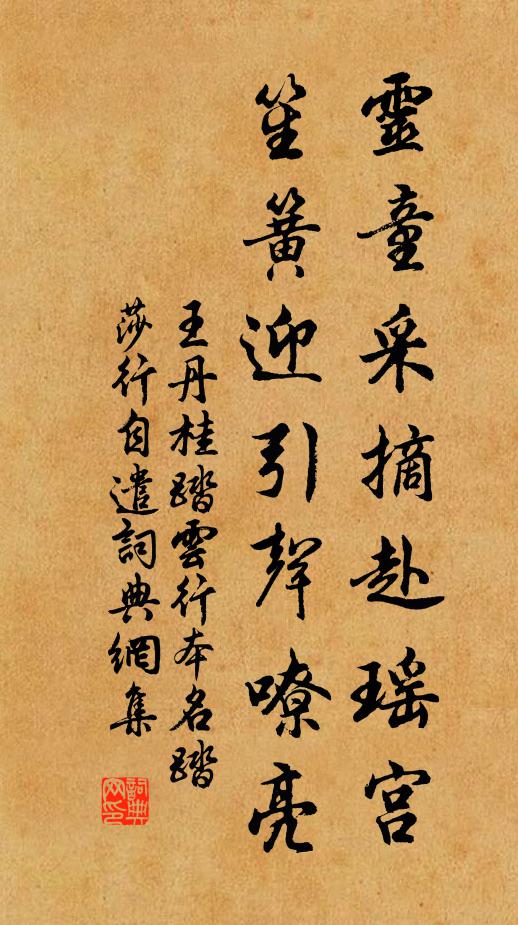 靈童采摘赴瑶宮
笙簧迎引聲嘹亮
王丹桂踏雲行本名踏
莎行自遣詞典網集
詞典網印